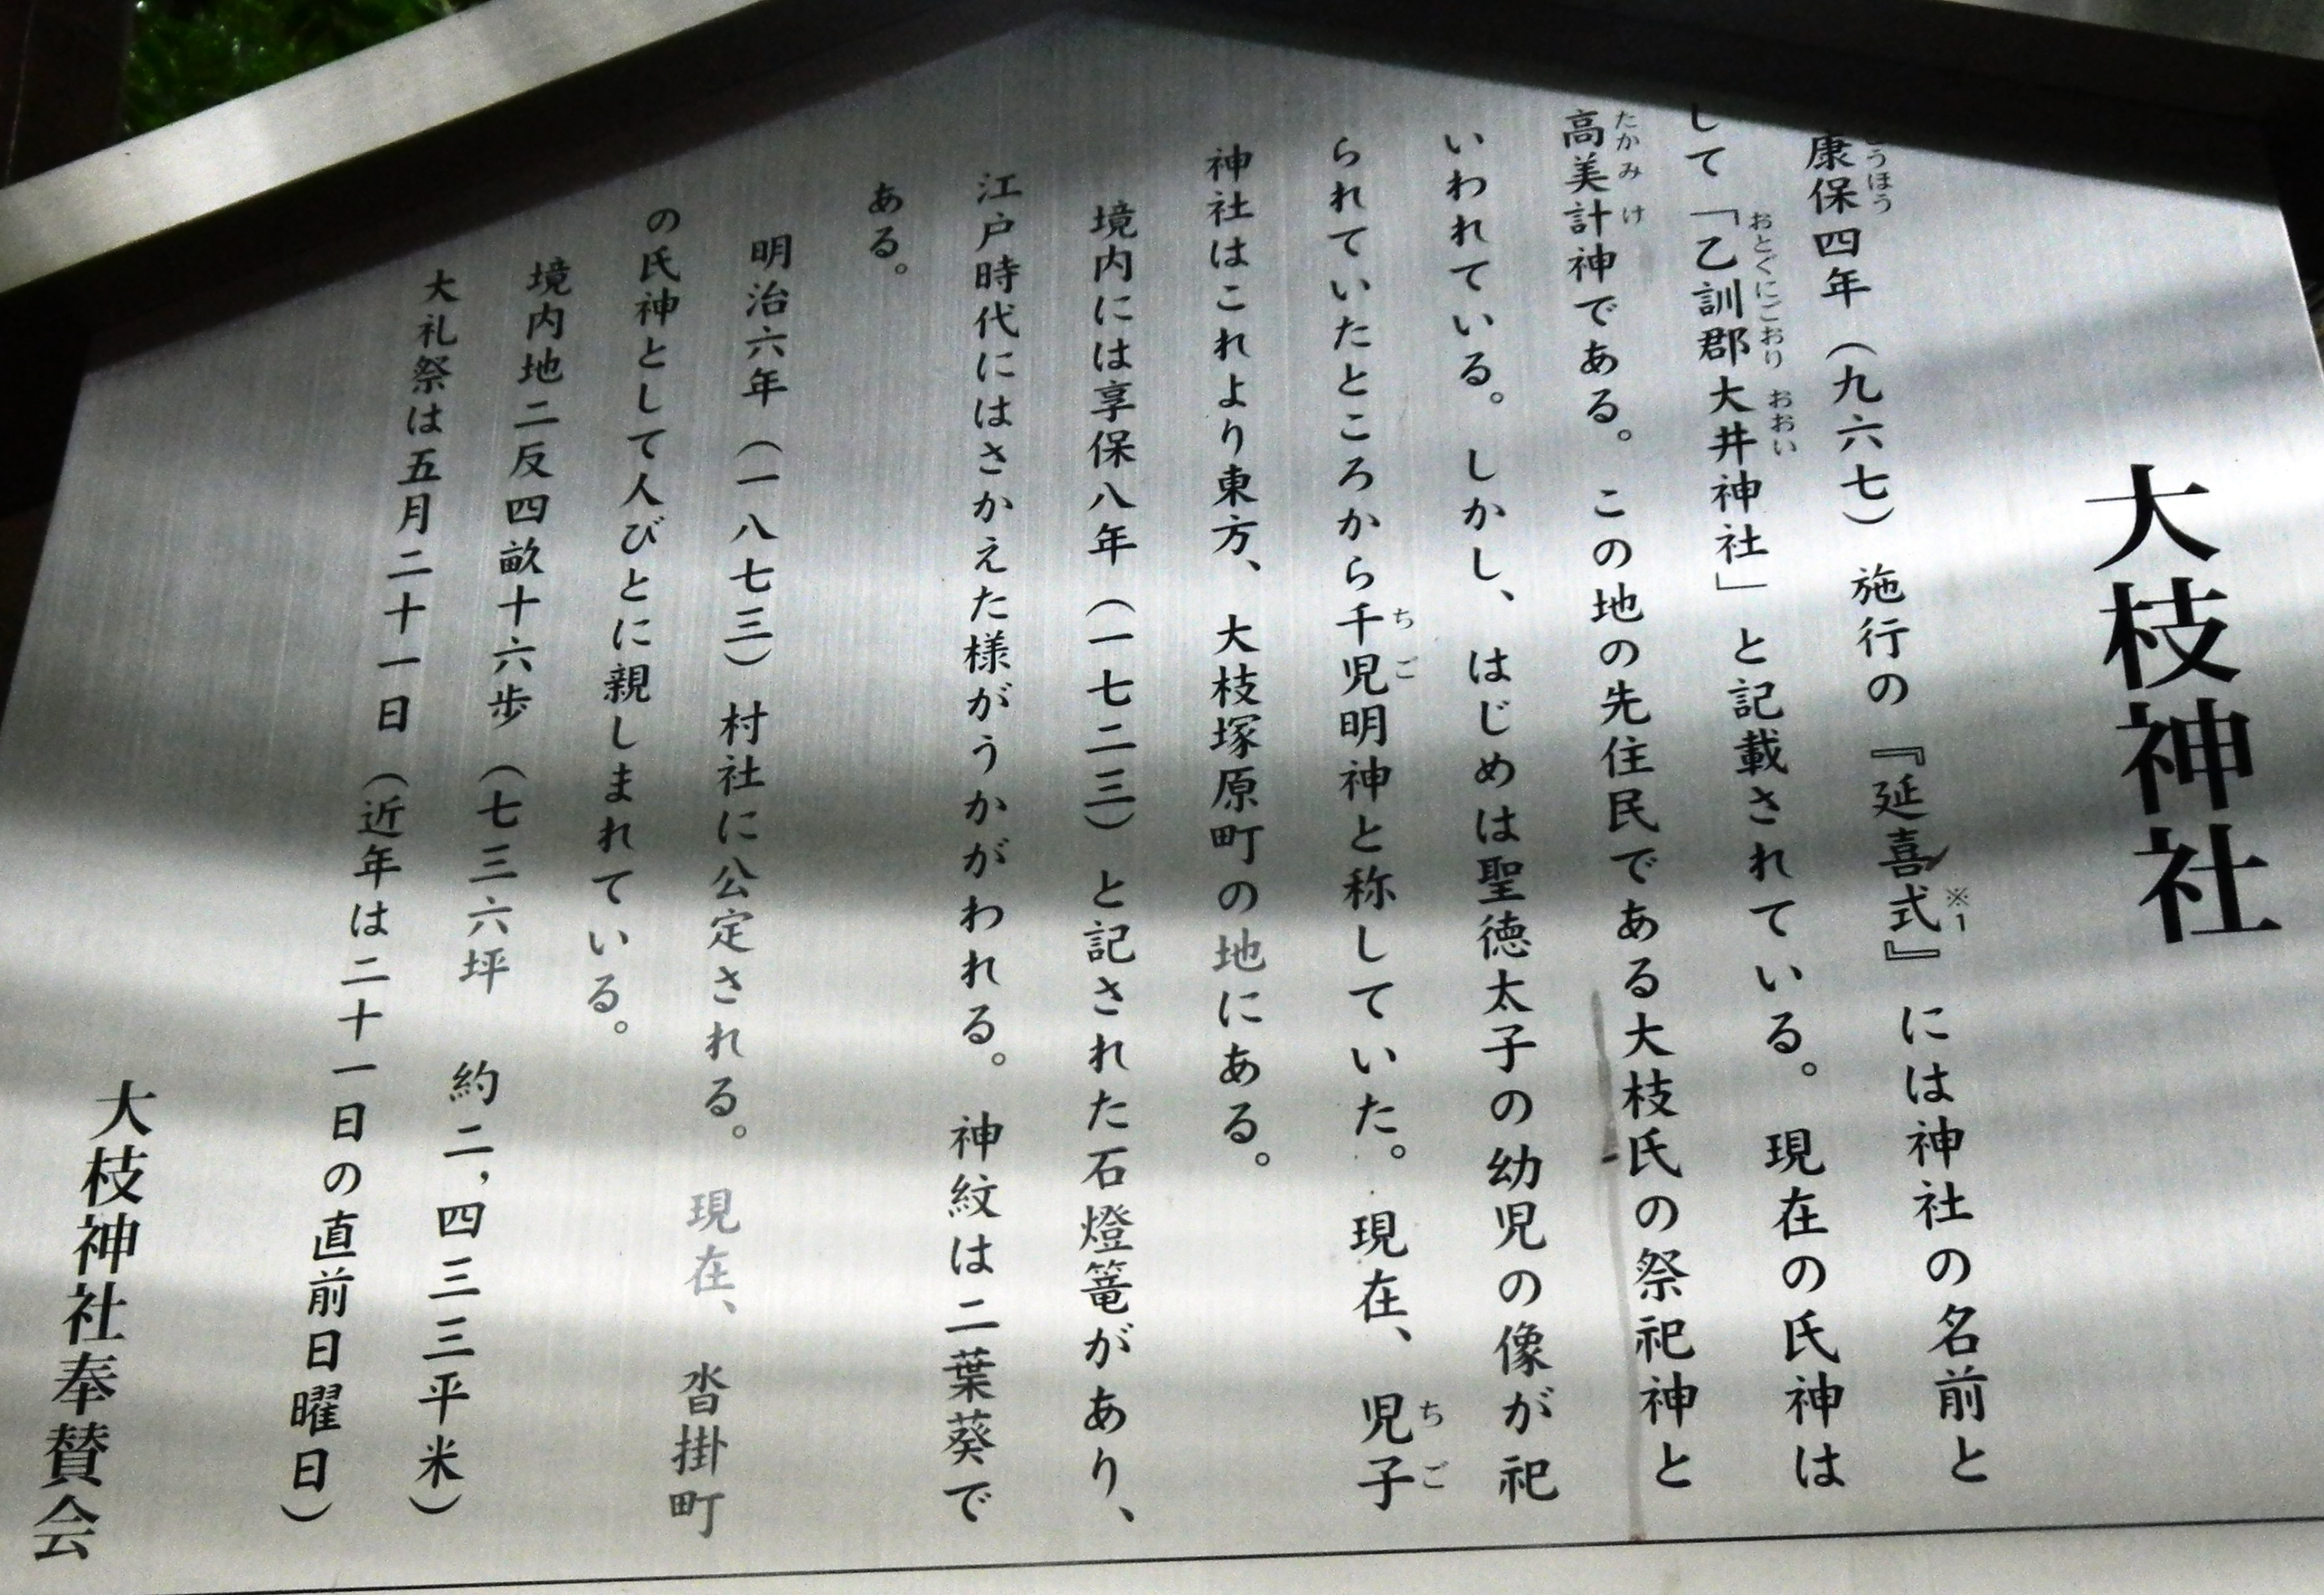 大枝神社
康保四年（九六七）施行の『延喜式』※1には神社の名前と
して「乙訓郡大井神社」と記載されている。現在の氏神は
高美計神である。この地の先住民である大枝氏の祭祀神と
いわれている。しかし、はじめは聖徳太子の幼児の像が祀
られていたところから千児明神と称していた。現在、児子
神社はこれより東方、大枝塚原町の地にある。
境内には享保八年（一七二三）と記された石燈篭があり、
江戸時代にはさかえた様がうかがわれる。神紋は二葉葵で
ある。
明治六年（一八七三）村社に公定される。現在、沓掛町
の氏神として人びとに親しまれている。
境内地二反四畝十六歩（七三六坪　約二,四三三平米）
大礼祭は五月二十一日（近年は二十一日の直前日曜日）
大枝神社奉賛会